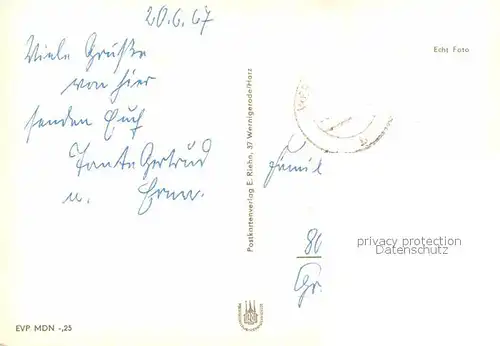 20.6.67
Viele Grüße
von hier
senden Euch
Tante Gertrud
u.
Echt Foto
Postkartenverlag E. Riehn, 37 Wernigerode/Harz
Famil
80
Gr.
privacy protection
Datenschutz
EVP MDN -,25